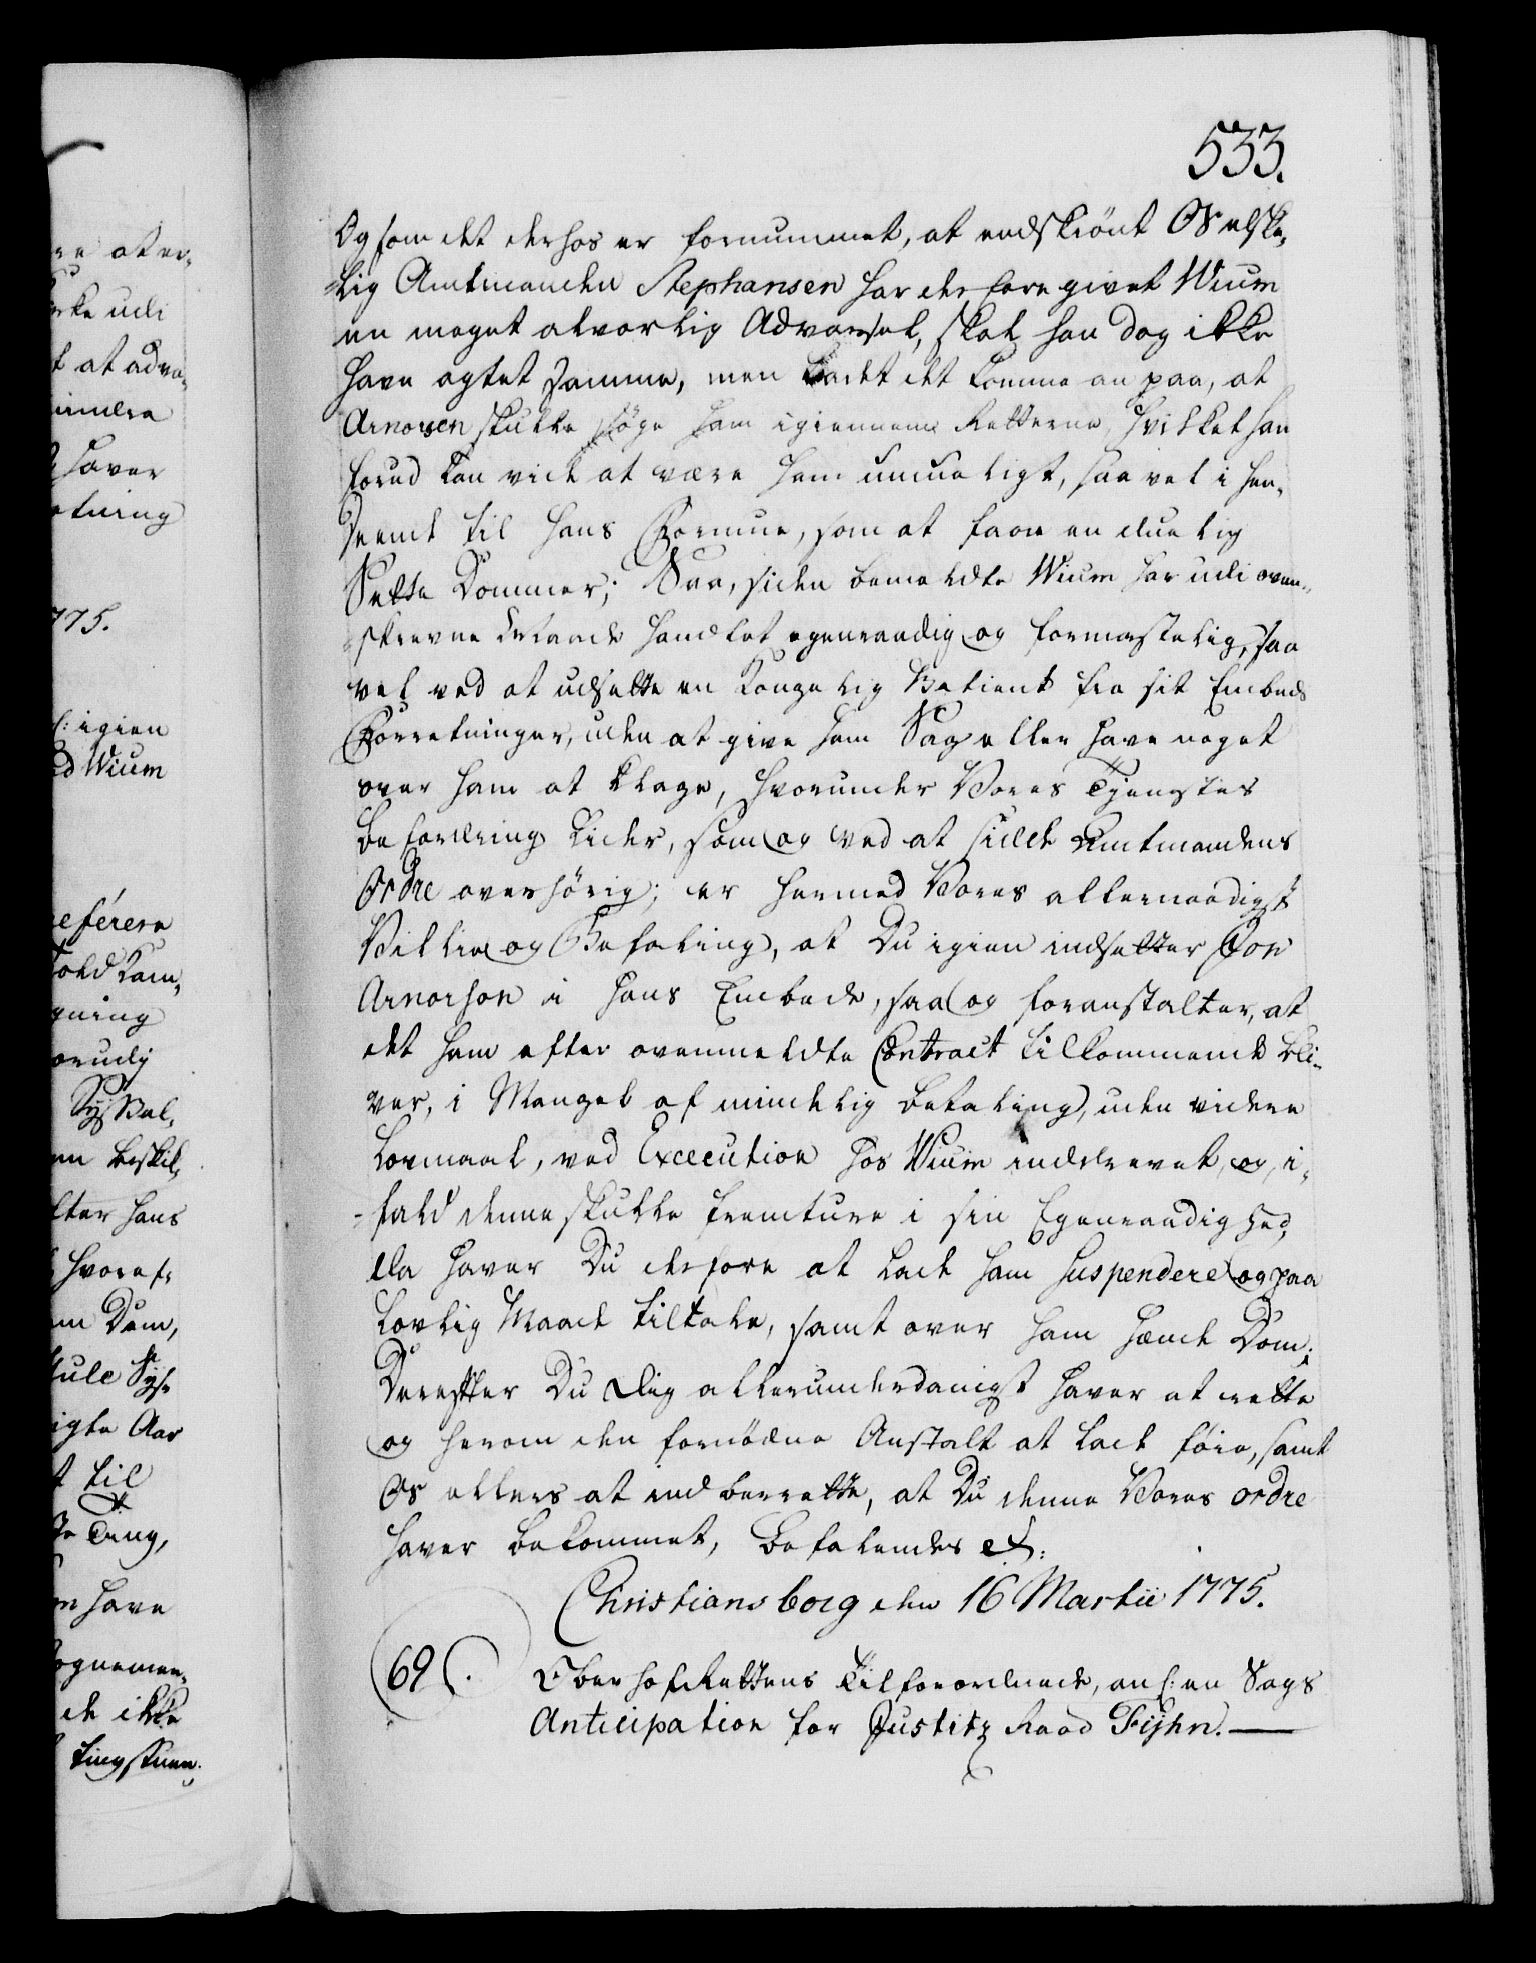 533.
Og som det derhos er fornummet, at endskiönt Os elske-
lig Amtmanden Stephansen har derfore givet Wium
en meget alvorlig Advarsel, skal han dog ikke
have agtet samme, men ladet det komme an paa, at
Arnorsen skulle söge ham igiennem Retterne, hvilket han
forud kan vide at være ham umueligt, saa vel i hen-
seende til hans Formue, som at faae en duelig
Sætte Dommer; Saa, siden bemeldte Wium har udi oven-
skrevne Maade handlet egenraadig og formastelig, saa
vel ved at udsette en Kongelig Betient fra sit Embeds
Forretninger, uden at give ham Sag eller have noget
over ham at klage, hvorunder Vores Tjenestes
befordring lider, som og ved at sidde Amtmandens
Ordre overhörig; er hermed Vores allernaadigste
Villie og Befaling, at Du igien indsetter Jon
Arnorson i hans Embede, saa og foranstalter, at
det ham efter ovenmeldte Contract tilkommende bli-
ver, i Mangel af mindelig betaling, uden videre
Lovmaal, ved Execution hos Wium inddrevet, og, i-
fald denne skulle fremture i sin Egenraadighed,
da haver Du derfore at lade ham suspendere og paa
lovlig Maade tiltale, samt over ham hænde Dom;
Derefter Du Dig allerunderdanigst haver at rette
og herom den fornödne Anstalt at lade föie, samt
Os ellers at indberette, at Du denne Vores ordre
haver bekommet, Befalendes etc:
Christiansborg den 16 Martii 1775.
69. Oberhofrettens Tilforordnede, anl: en Sags
Anticipation for Justitz Raad Fijhn.
re at er-
udi
t at adva-
haver
etning
775.
l: igien
ed Wium
referere
told Kam-
gning
orudi
SysBel-
en beskik-
lter hans
hvoref-
em Dom,
Mule Sys-
igte Aar
t til
te Ting,
en have
ognemæn-
de ikke
tingstuen.